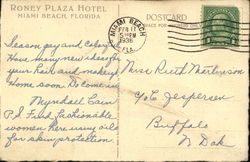 RONEY PLAZA HOTEL
MIAMI BEACH, FLORIDA
POSTCARD
MIAMI BEACH
FEB 11
5 PM
1936
FLA.
Season gay and colorful
Have many new ideas for
your hair and makeup
Home soon. Do come in
Myrndall Cain
P.S. Find fashionable
women here using oils
for skin protection.
Miss Ruth
c/o C. Jespersen
Buffalo
N Dak